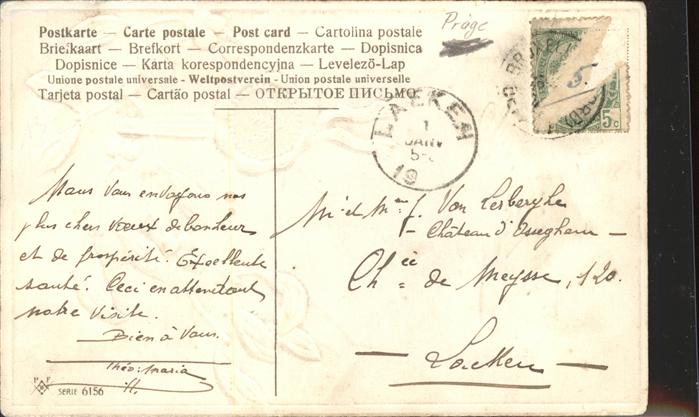 Prage
Postkarte — Carte postale — Post card — Cartolina postale
Briefkaart — Brefkort — Correspondenzkarte — Dopisnica
Dopisnice — Kárta korespondencyjna — Levelező-Lap
Unione postale universale - Weltpostverein - Union postale universelle
Tarjeta postal — Cartão postal — ОТКРЫТОЕ ПИСЬМО
5.
5c
LAEKEN
1
JANV
5-
19
Nous Vous envoyons nos
plus chers voeux de bonheur
et de prospérité. Excellente
santé. Ceci en attendant
notre visite.
Bien à Vous.
Théo: Maria
M' et Mme J. Von Lerberghe
— Château d'Osseghem —
Chée de Meysse, 120.
— Laeken —
SERIE 6156